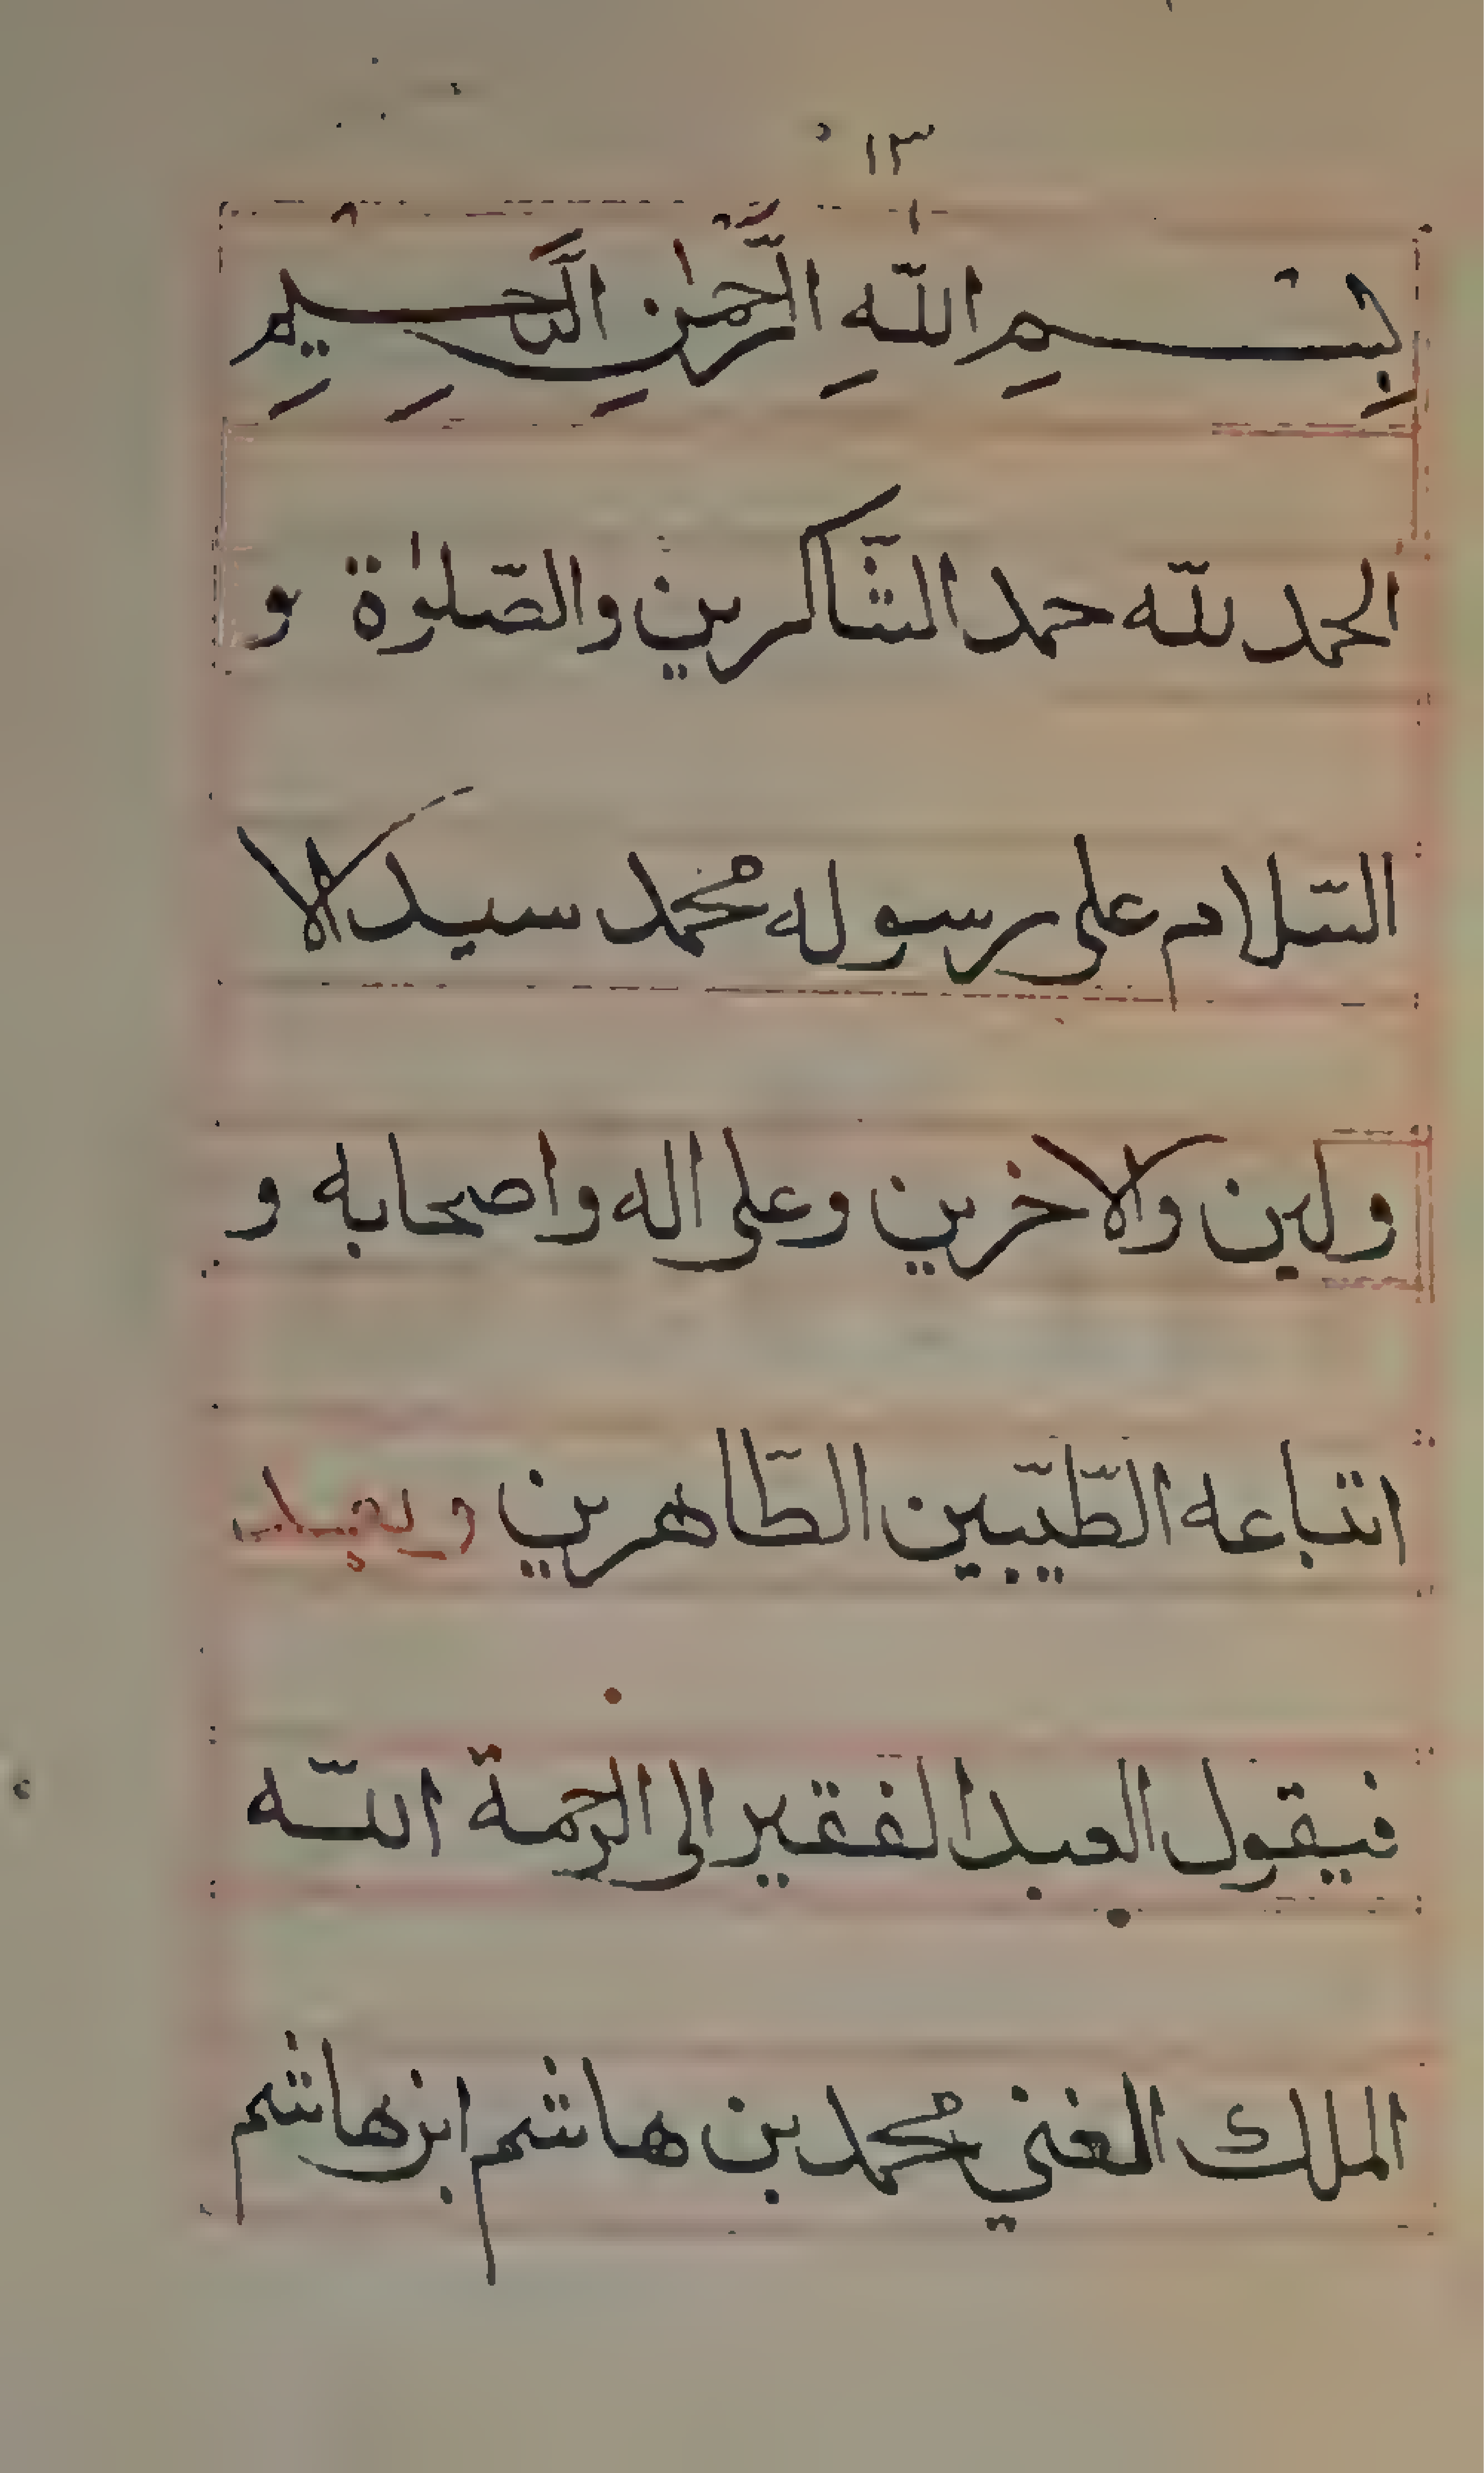 ١٣
بِسْمِ اللّٰهِ الرَّحْمٰنِ الرَّحِيمِ
الحمد للّه حمد الشّاكرين والصّلوٰة و
السّلام على رسوله محمد سيد الا
ولين والاخرين وعلى اله واصحابه و
اتباعه الطّيّبين الطّاهرين وبعد
فيقول العبد الفقير الى الرحمة اللّه
الملك الغني محمد بن هاشم ابن هاشم